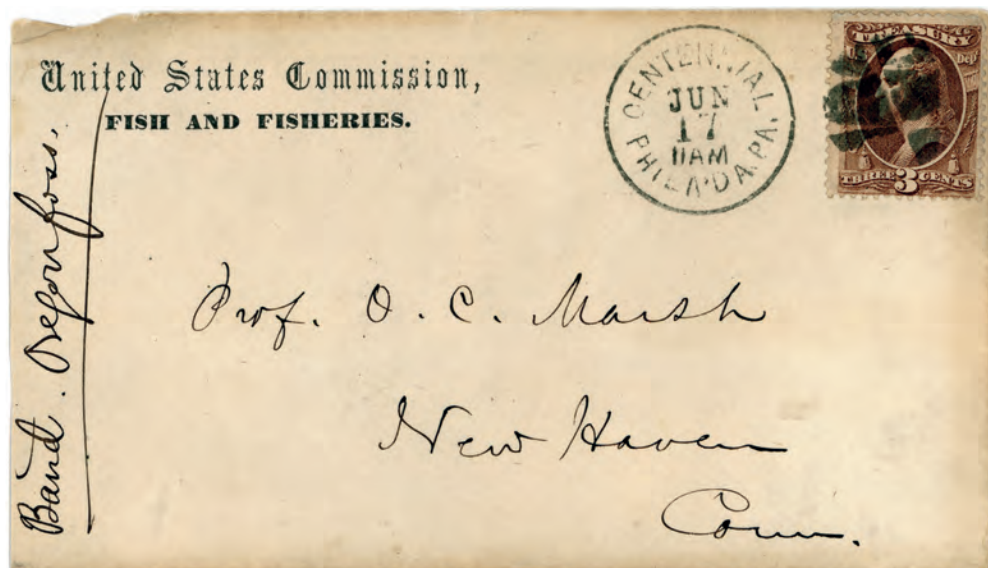 United States Commission,
FISH AND FISHERIES.
CENTENNIAL
JUN
17
11AM
PHILA'DA.PA.
TREASURY
U.S. Dept
THREE 3 CENTS
Prof. O. C. Marsh
New Haven
Conn.